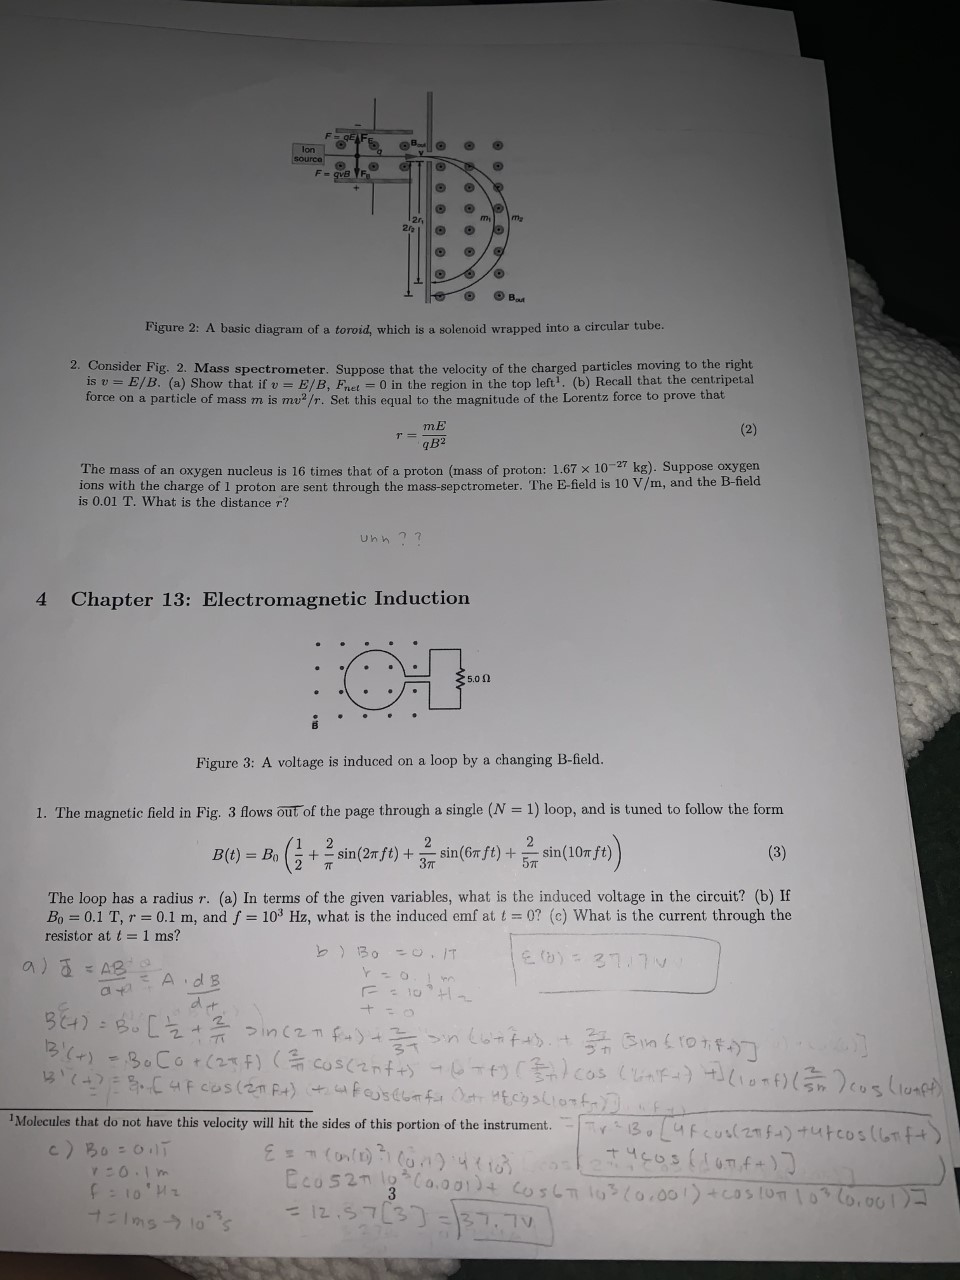 F = qE
F_E
q
B_out
v
Ion
source
F = qvB
F_B
−
+
2r₁
2r₂
m₁
m₂
B_out
Figure 2: A basic diagram of a toroid, which is a solenoid wrapped into a circular tube.
2. Consider Fig. 2. Mass spectrometer. Suppose that the velocity of the charged particles moving to the right
is v = E/B. (a) Show that if v = E/B, F_net = 0 in the region in the top left¹. (b) Recall that the centripetal
force on a particle of mass m is mv²/r. Set this equal to the magnitude of the Lorentz force to prove that
r = mE/qB² (2)
The mass of an oxygen nucleus is 16 times that of a proton (mass of proton: 1.67 × 10⁻²⁷ kg). Suppose oxygen
ions with the charge of 1 proton are sent through the mass-sepctrometer. The E-field is 10 V/m, and the B-field
is 0.01 T. What is the distance r?
uhh ??
4 Chapter 13: Electromagnetic Induction
5.0 Ω
B
Figure 3: A voltage is induced on a loop by a changing B-field.
1. The magnetic field in Fig. 3 flows out of the page through a single (N = 1) loop, and is tuned to follow the form
B(t) = B₀ (1/2 + 2/π sin(2πft) + 2/3π sin(6πft) + 2/5π sin(10πft)) (3)
The loop has a radius r. (a) In terms of the given variables, what is the induced voltage in the circuit? (b) If
B₀ = 0.1 T, r = 0.1 m, and f = 10³ Hz, what is the induced emf at t = 0? (c) What is the current through the
resistor at t = 1 ms?
b) B₀ = 0.1T
r = 0.1m
F = 10³ Hz
t = 0
a)
= A · dB/dt
B(t) = B₀ [1/2 + 2/π sin(2πft) + 2/3π
B'(t) = B₀[0 + (2πf) (2/π cos(2πft)
B'(t) = B₀ [4f cos(2πft)
¹Molecules that do not have this velocity will hit the sides of this portion of the instrument.
B₀[4f cos(2πft) + 4f cos(6πft)
+ 4cos(10πft)]
c) B₀ = 0.1T
r = 0.1m
f = 10³ Hz
t = 1ms → 10⁻³s
[cos2π10³(0.001) + cos6π10³(0.001) + cos10π10³(0.001)]
= 12.57[3] = 37.7V
3